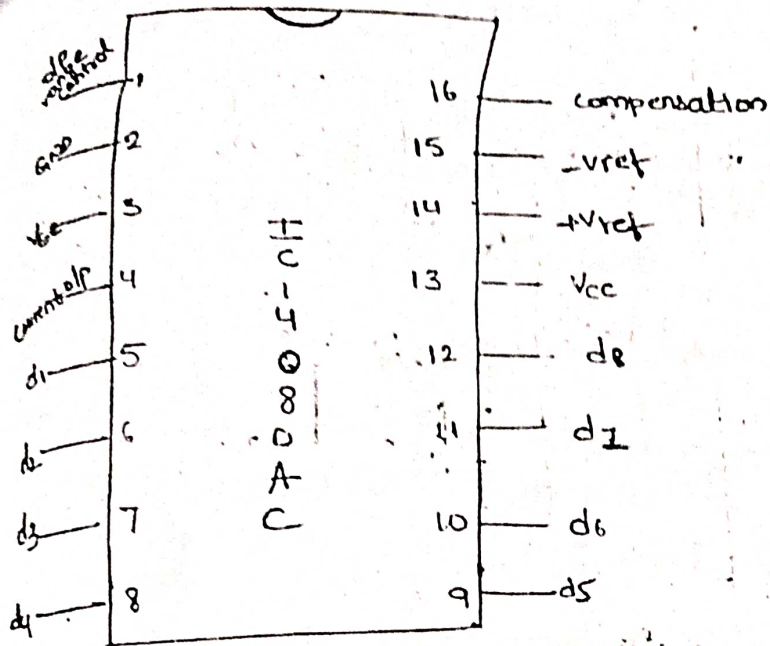 o/p range control
1
GND
2
Vee
3
Current o/p
4
d1
5
d2
6
d3
7
d4
8
IC 1408 DAC
16 compensation
15 -Vref
14 +Vref
13 Vcc
12 d8
11 d7
10 d6
9 d5